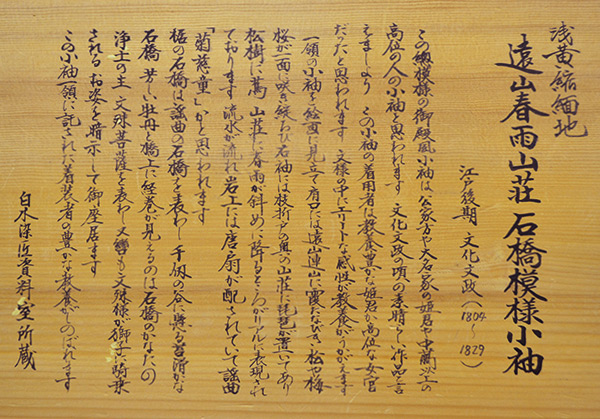 浅黄縮緬地
遠山春雨山荘 石橋模様小袖
江戸後期 文化文政（1804～1829）
この総模様の御殿風小袖は、公家方や大名家の姫君や中﨟以上の
高位の人の小袖と思われます 文化文政の頃の素晴らしい作品と言
えましょう この小袖の着用者は教養豊かな姫君か高位な女官
だったと思われます 文様の中にエリートな感性が教養がうかがえます
一領の小袖を絵画に見立て肩口には遠山連山に霞たなびき、松や梅
桜が一面に咲き競らひ右袖には枝折戸の奥の山荘に琵琶が置いてあり
松樹に蔦 山荘に春雨が斜めに降るところがリアルに表現され
ております 流水が流れ岩上には唐扇が配されていて謡曲
「菊慈童」かと思われます
裾の石橋は謡曲の石橋を表わし 千仭の谷に懸る苔滑かな
石橋 芳しい牡丹と橋上に経巻が見えるのは石橋のかなたの
浄土の主 文殊菩薩を表わし 又響も文殊様が獅子に騎乗
されるお姿を暗示して御座居ます
この小袖一領に託された着装者の豊かな教養がしのばれます
白木染匠資料室所蔵